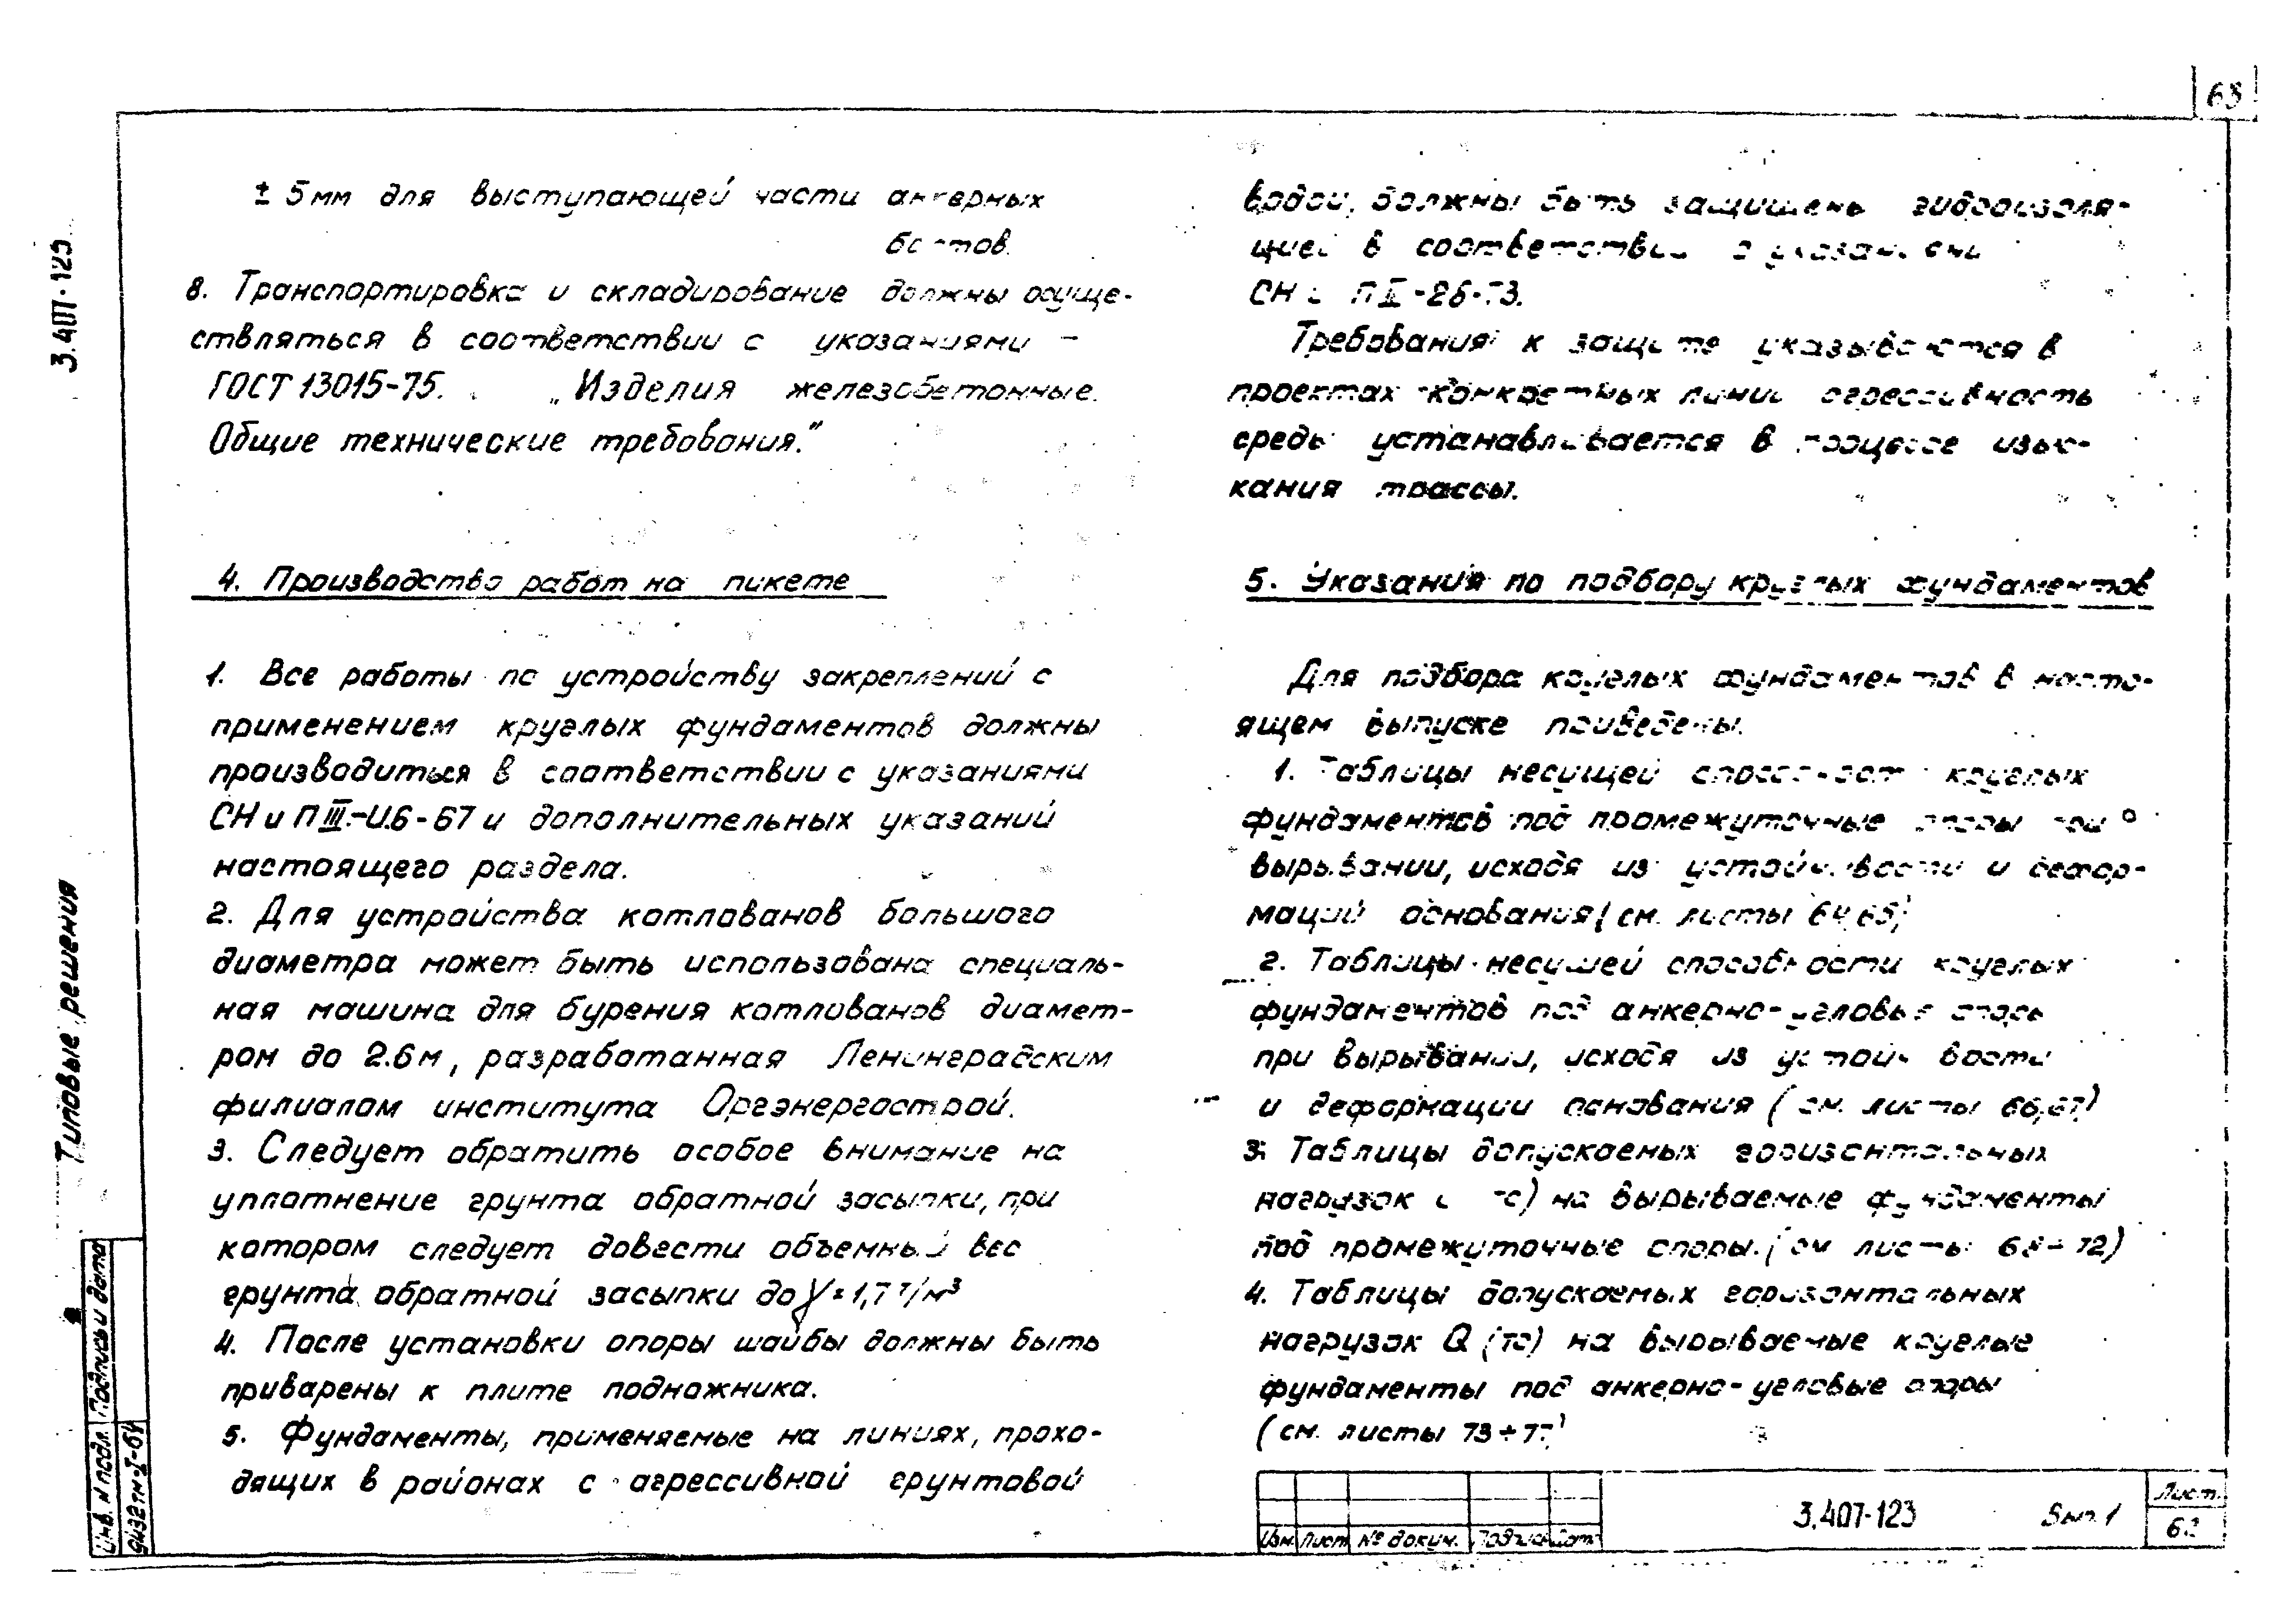 63
± 5мм для выступающей части анкерных
болтов.
8. Транспортировка и складирование должны осуще-
ствляться в соответствии с указаниями -
ГОСТ 13015-75. „Изделия железобетонные.
Общие технические требования."
4. Производство работ на пикете
1. Все работы по устройству закреплений с
применением круглых фундаментов должны
производиться в соответствии с указаниями
СН и П III.-И.6-67 и дополнительных указаний
настоящего раздела.
2. Для устройства котлованов большого
диаметра может быть использована специаль-
ная машина для бурения котлованов диамет-
ром до 2.6м, разработанная Ленинградским
филиалом института Оргэнергострой.
3. Следует обратить особое внимание на
уплотнение грунта обратной засыпки, при
котором следует довести объемный вес
грунта обратной засыпки до γ=1,7 т/м³
4. После установки опоры шайбы должны быть
приварены к плите подножника.
5. Фундаменты, применяемые на линиях, прохо-
дящих в районах с агрессивной грунтовой
водой, должны быть защищены гидроизоля-
цией в соответствии с указаниями
СН и П II-28-73.
Требования к защите указываются в
проектах конкретных линий агрессивность
среды устанавливается в процессе изыс-
кания трассы.
5. Указания по подбору круглых фундаментов
Для подбора круглых фундаментов в насто-
ящем выпуске приведены.
1. Таблицы несущей способности круглых
фундаментов под промежуточные опоры при
вырывании, исходя из устойчивости и дефор-
маций основания (см. листы 64,65)
2. Таблицы несущей способности круглых
фундаментов под анкерно-угловые опоры
при вырывании, исходя из устойчивости
и деформации основания (см. листы 66,67)
3. Таблицы допускаемых горизонтальных
нагрузок (тс) на вырываемые фундаменты
под промежуточные опоры. (см листы 68÷72)
4. Таблицы допускаемых горизонтальных
нагрузок Q (тс) на вырываемые круглые
фундаменты под анкерно-угловые опоры
(см. листы 73÷77)
Изм. Лист № докум. Подпись Дата
3.407-123 Вып. 1
Лист
63
3.407-123
Типовые решения
Подпись и дата
Инв. N подл.
9432тм-I-64